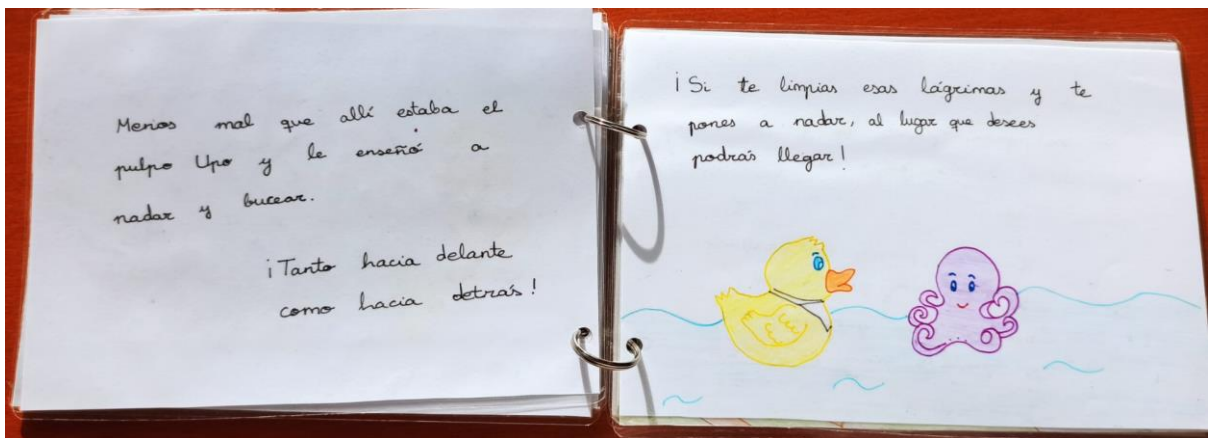 Menos mal que allí estaba el
pulpo Upo y le enseñó a
nadar y bucear.
¡Tanto hacia delante
como hacia detrás!
¡Si te limpias esas lágrimas y te
pones a nadar, al lugar que desees
podrás llegar!